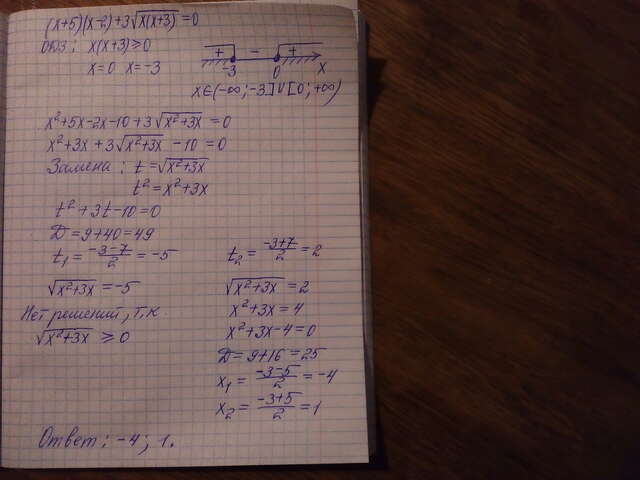 (x+5)(x-2)+3√(x(x+3)) = 0
ОДЗ: x(x+3) ≥ 0
x=0 x=-3
+ - +
-3 0 x
x∈(-∞;-3]∪[0;+∞)
x²+5x-2x-10+3√(x²+3x) = 0
x²+3x+3√(x²+3x) -10=0
Замена: t=√(x²+3x)
t²=x²+3x
t²+3t-10=0
D=9+40=49
t₁= (-3-7)/2 = -5 t₂= (-3+7)/2 = 2
√(x²+3x) = -5 √(x²+3x) = 2
Нет решений, т.к. x²+3x=4
√(x²+3x) ≥ 0 x²+3x-4=0
D=9+16=25
x₁= (-3-5)/2 = -4
x₂= (-3+5)/2 = 1
Ответ: -4; 1.